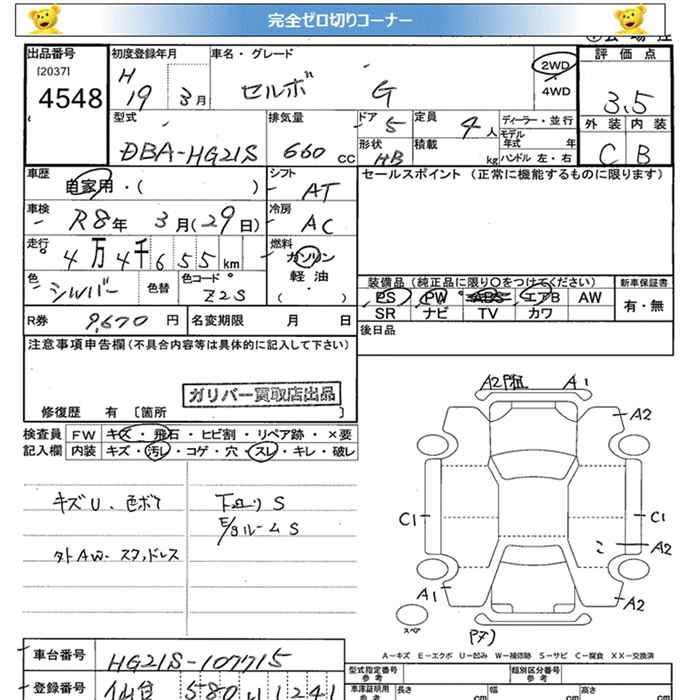 完全ゼロ切りコーナー
出品番号
[2037]
4548
初度登録年月
H 19 3月
車名・グレード
セルボ G
2WD
4WD
評価点
3.5
外装 内装
C B
型式
DBA-HG21S
排気量
660 CC
ドア 5
形状 HB
定員 4人
積載 kg
ディーラー・並行
モデル年式 年
ハンドル 左・右
車歴
自家用・( )
シフト AT
車検
R8年 3月(29日)
冷房 AC
走行
4万4千655km
燃料
ガソリン
軽油
( ・ )
色
シルバー
色替
色コード
Z2S
R券 9,670円
名変期限 月 日
セールスポイント(正常に機能するものに限ります)
装備品(純正品に限り○をつけてください)
PS PW ABS エアB AW
SR ナビ TV カワ
新車保証書
有・無
後日品
注意事項申告欄(不具合内容等は具体的に記入して下さい)
ガリバー買取店出品
修復歴 有 [箇所 ]
検査員記入欄
FW キズ・飛石・ヒビ割・リペア跡・×要
内装 キズ・汚レ・コゲ・穴・スレ・キレ・破レ
キズU、色ボケ
下回りS
E/gルームS
タトAW・スタッドレス
A2 A1
A2
C1 C1
A2
A1 A2
スペア
A-キズ E-エクボ U-凹み W-補修跡 S-サビ C-腐食 XX-交換済
車台番号
HG21S-107715
登録番号
仙台 580 い 1241
型式指定番号
参考
類別区分番号
参考
車庫証明用
参考
長さ cm 幅 cm 高さ cm